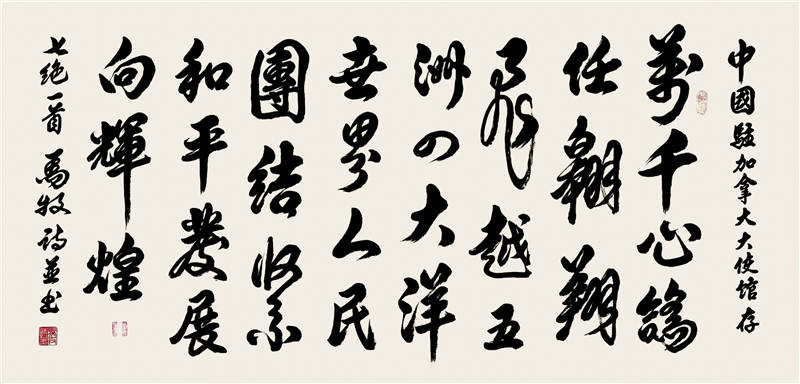 中國駐加拿大大使馆存
萬千心鴿
任翱翔
飛越五
洲四大洋
世界人民
團結緊
和平發展
向輝煌
七绝一首 馬牧詩並書